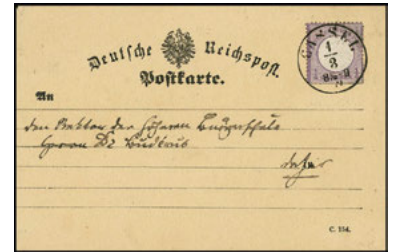 Deutsche Reichspost
Postkarte.
CASSEL
1
3
An
den Rektor der höheren Bürgerschule
Herrn Dr
C. 154.